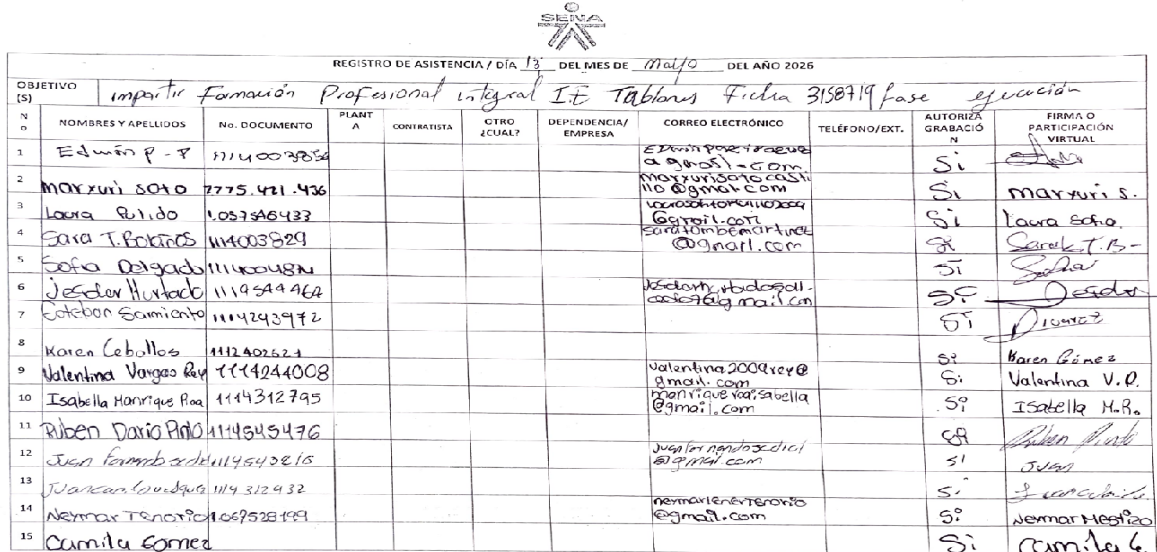 SENA
REGISTRO DE ASISTENCIA / DÍA 13 DEL MES DE Mayo DEL AÑO 2026
OBJETIVO (S) Impartir Formación Profesional integral I.E Tablones Ficha 3158719 fase ejecución
No NOMBRES Y APELLIDOS No. DOCUMENTO PLANTA CONTRATISTA OTRO ¿CUAL? DEPENDENCIA/ EMPRESA CORREO ELECTRÓNICO TELÉFONO/EXT. AUTORIZA GRABACIÓN FIRMA O PARTICIPACIÓN VIRTUAL
1 Edwin P - P Si
2 marxuri soto marxurisotocastillo@gmail.com Si marxuri s.
3 Laura Pulido 1.057546433 Si Laura Sofia.
4 Sara T. Bolaños 1114003829 saratombemartinez@gmail.com Si Sarah T.B-
5 Sofia Delgado Si Sofia
6 Hurtado 1119544464 Si
7 Esteban Sarmiento 1114243972 Si
8 Karen Ceballos 1112402621 Si Karen Gómez
9 Valentina Vargas Rey 1114244008 valentina2009rey@gmail.com Si Valentina V.R.
10 Isabella Manrique Roa 1114312795 manriqueroaisabella@gmail.com Si Isabella M.R.
11 Ruben Dario Pinto 1114545476 Si Ruben Pinto
12 Juan Fernando 1114543216 Si Juan
13 1114312432 Si
14 Neymar Tenorio 1.067528199 neymarlenertenorio@gmail.com Si Neymar Mestizo
15 Camila Gomez Si Camila G.